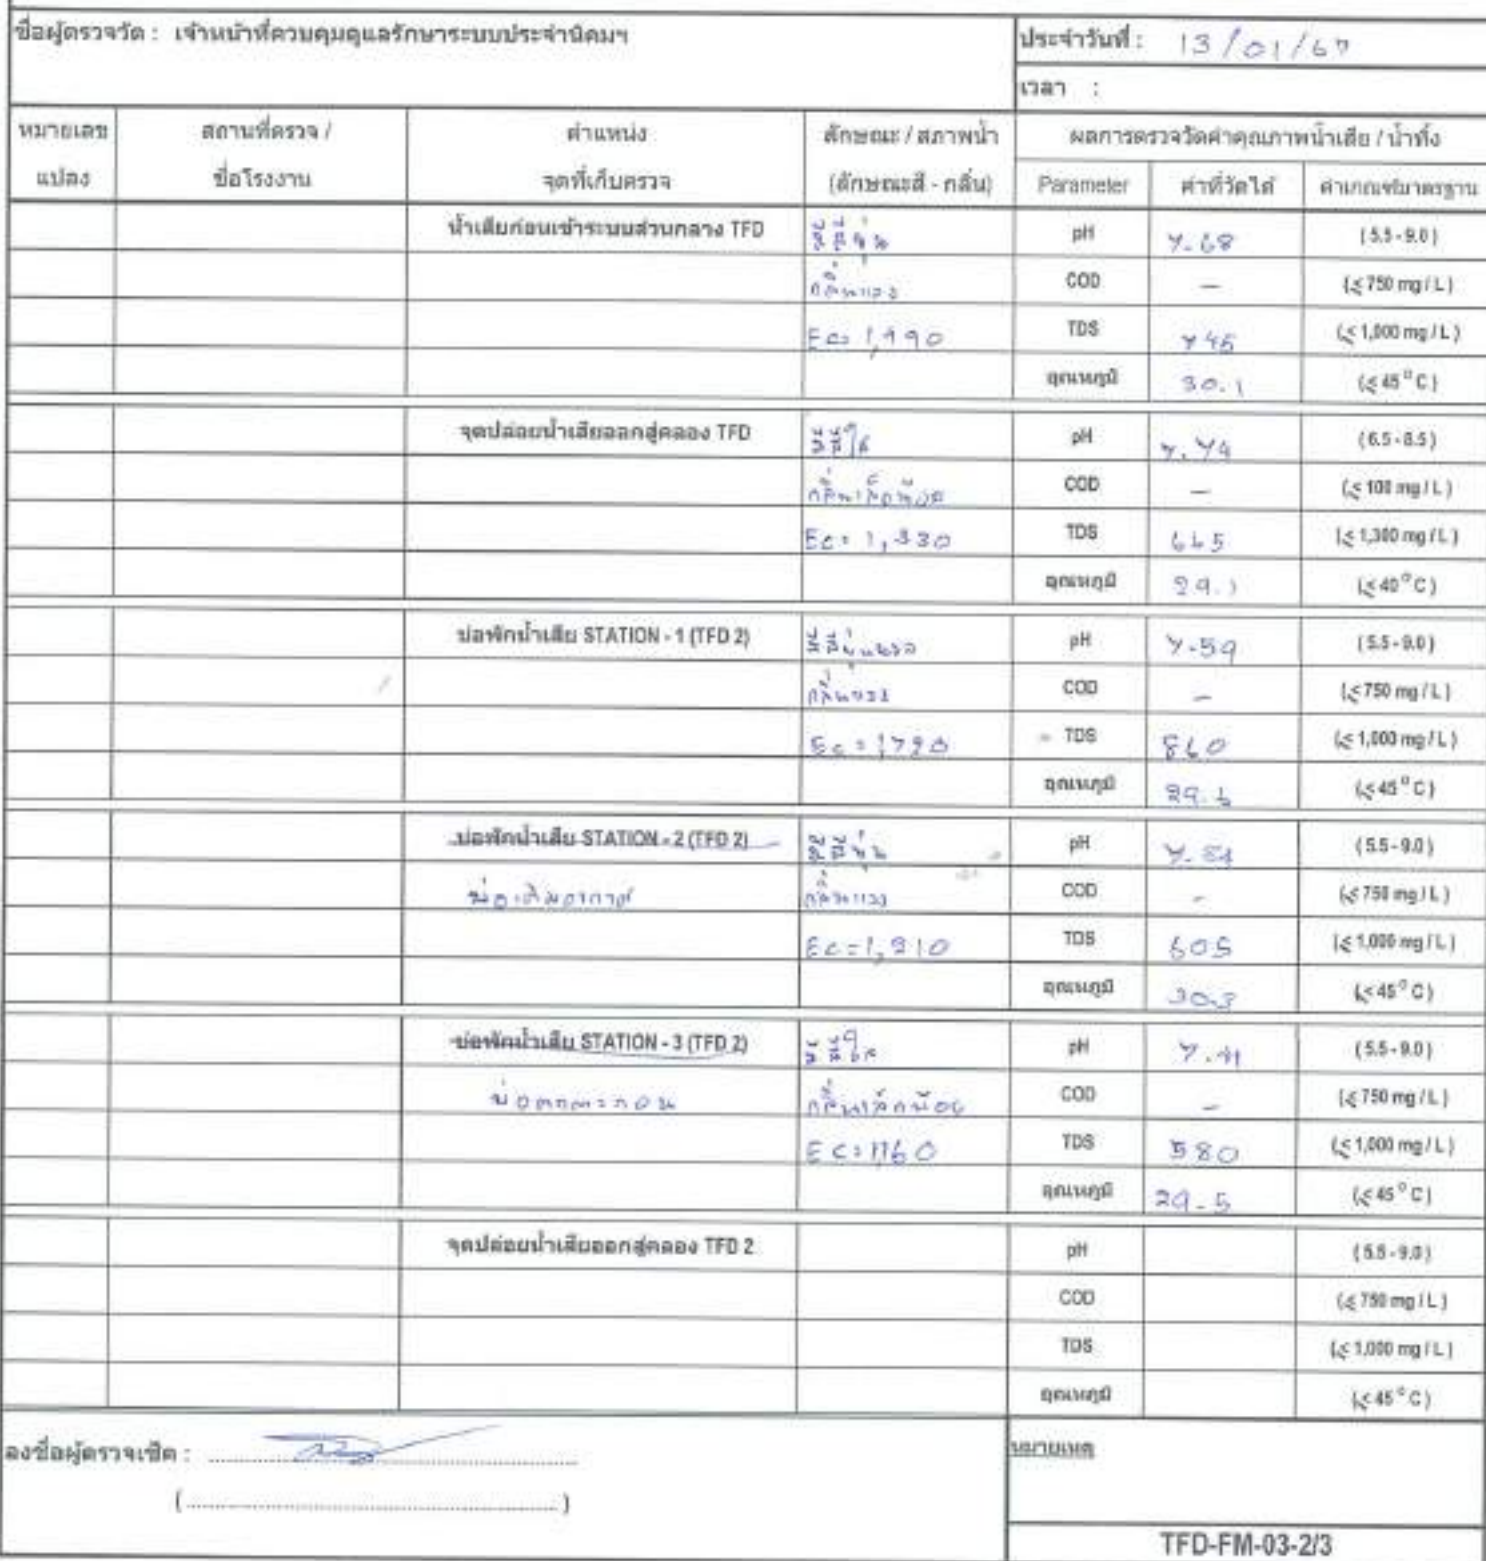 ชื่อผู้ตรวจวัด : เจ้าหน้าที่ควบคุมดูแลรักษาระบบประจำนิคมฯ
ประจำวันที่ : 13/01/67
เวลา :
หมายเลขแปลง สถานที่ตรวจ / ชื่อโรงงาน ตำแหน่งจุดที่เก็บตรวจ ลักษณะ / สภาพน้ำ (ลักษณะสี - กลิ่น) ผลการตรวจวัดค่าคุณภาพน้ำเสีย / น้ำทิ้ง
Parameter ค่าที่วัดได้ ค่าเกณฑ์มาตรฐาน
น้ำเสียก่อนเข้าระบบส่วนกลาง TFD pH 7.68 (5.5 - 9.0)
COD – (≤ 750 mg / L)
Ec= 1,490 TDS 745 (≤ 1,000 mg / L)
อุณหภูมิ 30.1 (≤ 45 °C)
จุดปล่อยน้ำเสียออกสู่คลอง TFD มีสีใส pH 7.74 (6.5 - 8.5)
กลิ่นเล็กน้อย COD – (≤ 100 mg / L)
Ec= 1,330 TDS 665 (≤ 1,300 mg / L)
อุณหภูมิ 29.1 (≤ 40 °C)
บ่อพักน้ำเสีย STATION - 1 (TFD 2) pH 7.59 (5.5 - 9.0)
COD – (≤ 750 mg / L)
Ec = 1720 TDS 860 (≤ 1,000 mg / L)
อุณหภูมิ 29.6 (≤ 45 °C)
บ่อพักน้ำเสีย STATION - 2 (TFD 2) pH (5.5 - 9.0)
บ่อเติมอากาศ COD – (≤ 750 mg / L)
Ec=1,210 TDS 605 (≤ 1,000 mg / L)
อุณหภูมิ 30.3 (≤ 45 °C)
บ่อพักน้ำเสีย STATION - 3 (TFD 2) มีสีใส pH (5.5 - 9.0)
บ่อตกตะกอน กลิ่นเล็กน้อย COD – (≤ 750 mg / L)
Ec=1160 TDS 580 (≤ 1,000 mg / L)
อุณหภูมิ 29.5 (≤ 45 °C)
จุดปล่อยน้ำเสียออกสู่คลอง TFD 2 pH (5.5 - 9.0)
COD (≤ 750 mg / L)
TDS (≤ 1,000 mg / L)
อุณหภูมิ (≤ 45 °C)
ลงชื่อผู้ตรวจเช็ค :
(..........)
หมายเหตุ
TFD-FM-03-2/3